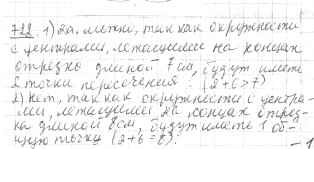 722 1) Да. можно, так как окружности
с центрами, лежащими на концах
отрезка длиной 7см, будут иметь
2 точки пересечения. (2+6>7)
2) нет, так как окружности с центра-
ми, лежащими на концах отрез-
ка длиной 8см, будут иметь 1 об-
щую точку (2+6=8).
-1